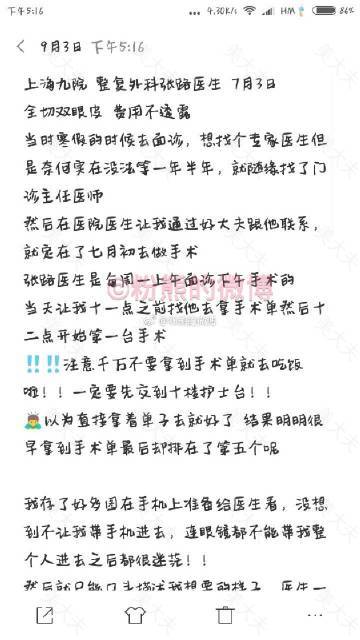 下午5:16 ... 4.30K/s HM 86%
9月3日 下午5:16
上海九院 整复外科张路医生 7月3日
全切双眼皮 费用不透露
当时寒假的时候去面诊，想找个专家医生但
是奈何实在没法等一年半年，就随缘找了门
诊主任医师
然后在医院医生让我通过好大夫跟他联系，
就定在了七月初去做手术
张路医生是每周一上午面诊下午手术的
©粉熊的微博
当天让我十一点之前找他去拿手术单然后十
二点开始第一台手术
‼️‼️注意千万不要拿到手术单就去吃饭
啦！！一定要先交到十楼护士台！！
🙇以为直接拿着单子去就好了 结果明明很
早拿到手术单最后却排在了第五个呢
我存了好多图在手机上准备给医生看，没想
到不让我带手机进去，连眼镜都不能带我整
个人进去之后都很迷茫！！
然后就只能口头描述我想要的样子，医生一